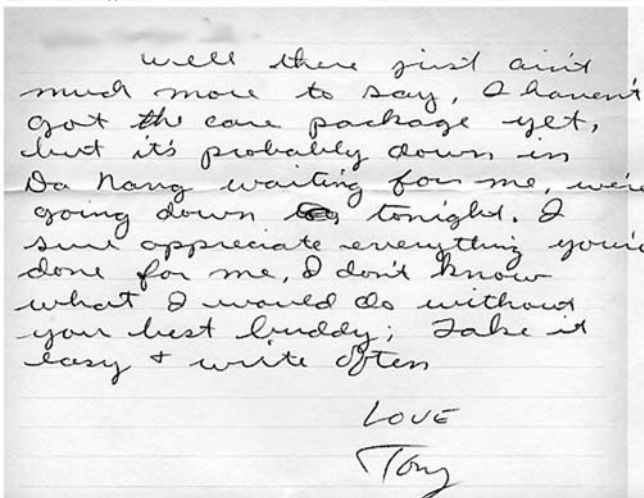 well there just ain't
much more to say, I haven't
got the care package yet,
but it's probably down in
Da Nang waiting for me, we're
going down tonight. I
sure appreciate everything you've
done for me, I don't know
what I would do without
your best buddy; Take it
easy + write often
LOVE
Tony